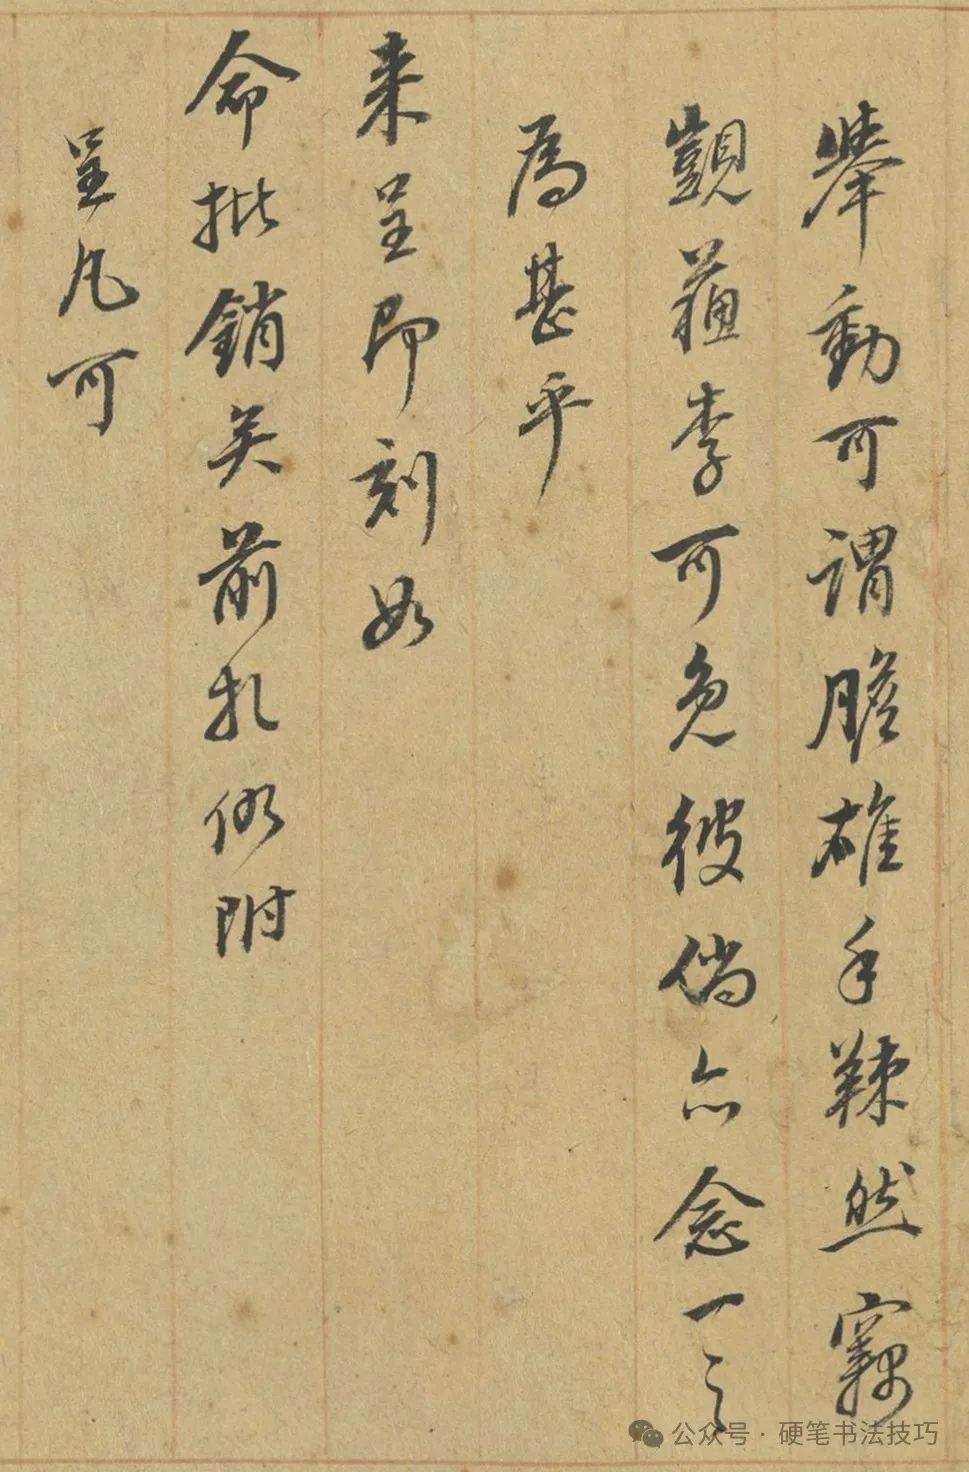 舉動可謂膽雄手辣然竊
觀蘊李可免彼倘亦念一之
為甚乎
来呈即刻如
命批銷矣前扎仍附
呈凡可
公众号·硬笔书法技巧